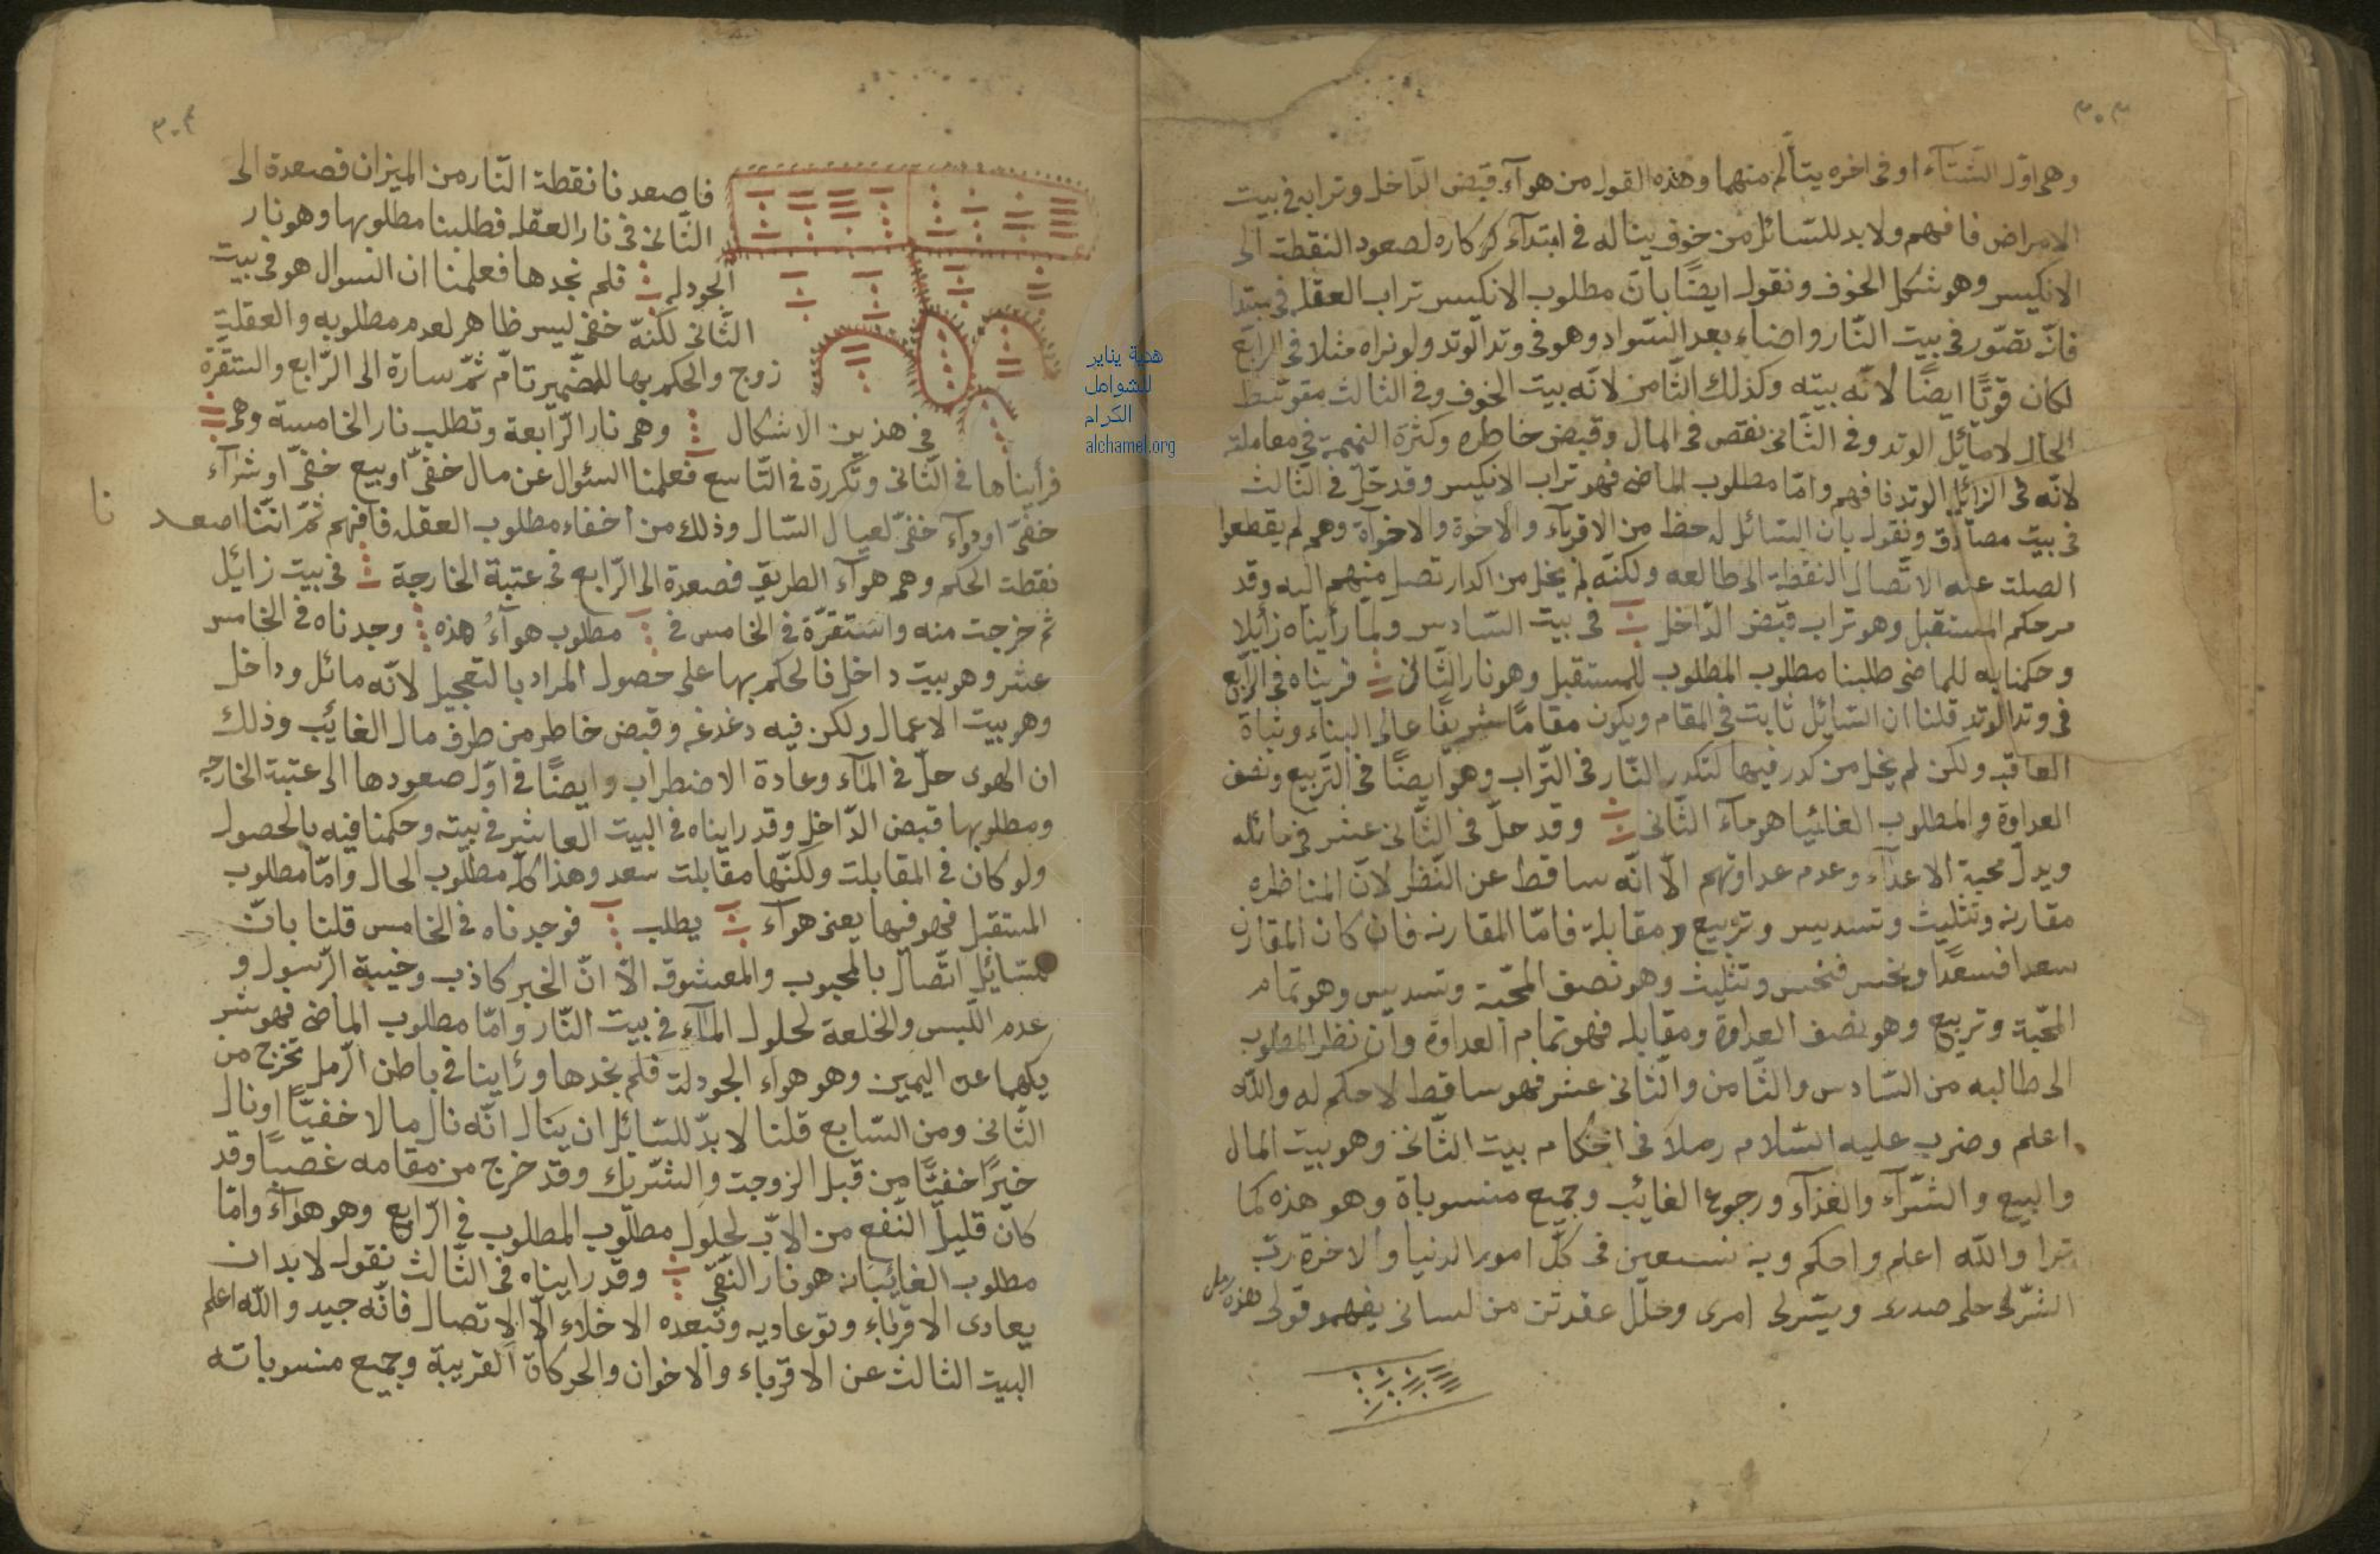 ٣٠٣
وهى اوّل الشّتآء او فى اخره يتألّم منهما وهذه القول من هوآء قبض الدّاخل وترابه فى بيت
الامراض فافهم ولابد للسّائل من خوف يناله فى ابتدآء كركاره لصعود النقطة الى
الانكيس وهو شكل الخوف ونقول ايضًا بأنّ مطلوب الانكيس تراب العقله فى
فانّه تصّور فى بيت النّار واضاء بعد السّواد وهو فى وتد الوتد ولو نراه مثلا فى الرّابع
لكان قوّتًا ايضًا لانّه بيته وكذلك الثّامن لانّه بيت الخوف وفى الثالث متوسّط
الحال لامآئل الوتد وفى الثّانى نقص فى المال وقبض خاطره وكثرة النميمة فى معاملته
لانّه فى الزائل الوتد فافهم وامّا مطلوب الماضى فهو تراب الانكيس وقد حلّ فى الثّالث
فى بيت مصادق ونقول بان السّائل له حظ من الاقربآء والاخوة والاخوآة وهم لم يقطعوا
الصلت عنه الاتّصال النقطة الى طالعه ولكنّه لم يخل من اكدار تصل منهم اليه وقد
مرحكم المستقبل وهو تراب قبض الدّاخل فى بيت السّادس ولمّا رأيناه زآئلا
وحكمنا به للماضى طلبنا مطلوب المطلوب للمستقبل وهو نار الثّانى فريناه فى الرّابع
فى وتد الوتد قلنا ان السّائل ثابت فى المقام ويكون مقامًا شريفًا عالى البناء وثباة
العاقبه ولكن لم يخل من كدر فيها لتكدر النّار فى التّراب وهو ايضًا فى التّربيع ونصف
العداوة والمطلوب الغائبا هو مآء الثّانى وقد حلّ فى الثّانى عشر فى مائله
ويدلّ محبة الاعدآء وعدم عداوتهم الّا انّه ساقط عن النّظر لانّ المناظره
مقارنه وتثليث وتسديس وتربيع ومقابلة فامّا المقارنه فان كان المقارن
سعدا فسعدًا ونحس فنحس وتثليث وهو نصف المحبّة وتسديس وهو تمام
المحبّة وتربيع وهو نصف العداوة ومقابله فهو تمام العداوة وان نظر المطلوب
الى طالبه من السّادس والثّامن والثّانى عشر فهو ساقط لاحكم له والله
اعلم وضرب عليه السّلام رملا فى احكام بيت الثّانى وهو بيت المال
والبيع والشّرآء والغذآء ورجوع الغائب وجميع منسوباة وهو هذه كما
ترا والله اعلم واحكم وبه نستعين فى كلّ امور الدنيا والاخرة ربّ
اشرّلى صدرى ويسّرلى امرى وحلل عقدتن من لسانى يفهمو قولى هذه رمل
٣٠٤
فاصعدنا نقطة النّار من الميزان فصعدة الى
الثّانى فى نار العقله فطلبنا مطلوبها وهو نار
الجودله فلم نجدها فعلمنا ان السوال هو فى بيت
الثّانى لكنّه خفى ليس ظاهر لعدم مطلوبه والعقلة
زوج والحكم بها للضّمير تامّ ثمّ سارة الى الرّابع واستقرّة
فى هذين الاشكال وهى نار الرّابعة وتطلب نار الخامسة وهى
فرأيناها فى الثّانى وتكررة فى التّاسع فعلمنا السئوال عن مال خفىّ او بيع خفىّ او شرآء
خفىّ او دوآء خفىّ لعيال السّال وذلك من اخفاء مطلوب العقله فافهم ثمّ انّنا اصعد
نا
نقطت الحكم وهى هوآء الطريق فصعدة الى الرّابع فى عتبة الخارجة فى بيت زائل
ثم خرجت منه واستقرّة فى الخامس فى مطلوب هوآءُ هذه وجدناه فى الخامس
عشر وهو بيت داخل فالحكم بها على حصول المراد بالتعجيل لانّه مائل وداخل
وهو بيت الاعمال ولكن فيه دغدغه وقبض خاطر من طرف مال الغائب وذلك
ان الهوى حلّ فى المآء وعادة الاضطراب وايضًا فى اوّل صعودها الى عتبة الخارجه
ومطلوبها قبض الدّاخل وقد رايناه فى البيت العاشر فى بيته وحكمنا فيه بالحصول
ولو كان فى المقابلت ولكنّها مقابلت سعد وهذا كلّه مطلوب الحال وامّا مطلوب
المستقبل فهو فيها يعنى هوآء يطلب فوجدناه فى الخامس قلنا بانّ
للسّائل اتّصال بالمحبوب والمعشوقه الّا انّ الخبر كاذب وخيبة الرّسول و
عدم اللّبس والخلعة لحلول المآء فى بيت النّار وامّا مطلوب الماضى فهو
عن اليمين وهو هواء الجودلة فلم نجدها ورأينا فى باطن الرّمل تخرج من
الثّانى ومن السّابع قلنا لابدّ للسّائل ان ينال انّه نال مالا خفيًّا او نال
خيرًا خفيًّا من قبل الزوجت والشّريك وقد خرج من مقامه غصبًا وقد
كان قليل النّفع من الابّ لحلول مطلوب المطلوب فى الرّابع وهو هوآء وامّا
مطلوب الغائبانه هو نار النّقى وقد رايناه فى الثّالث نقول لابد ان
يعادى الاقربآء وتوعاديه وتبعده الاخلاء الّا الاتصال فانّه جيد والله اعلم
البيت الثالث عن الاقرباء والاخوان والحركاة القريبة وجميع منسوباته
هدية يناير
للشوامل
الكرام
alchamel.org